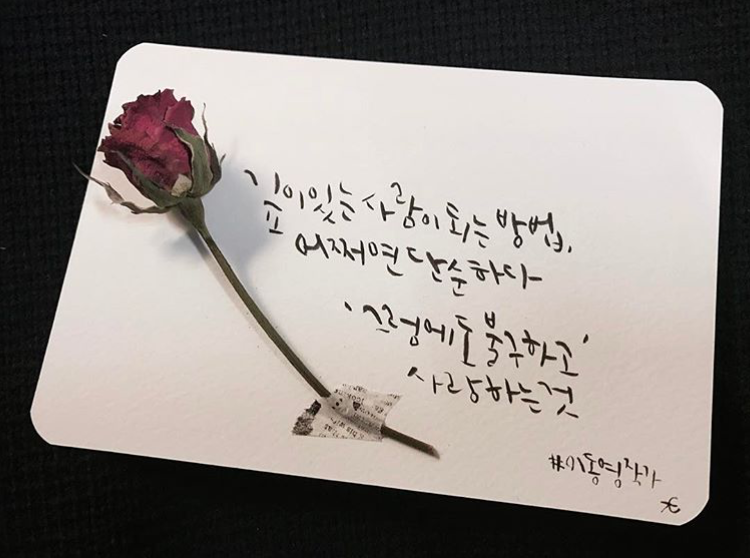 깊이있는 사람이 되는 방법,
어쩌면 단순하다
'그럼에도 불구하고'
사랑하는 것
#이동영작가